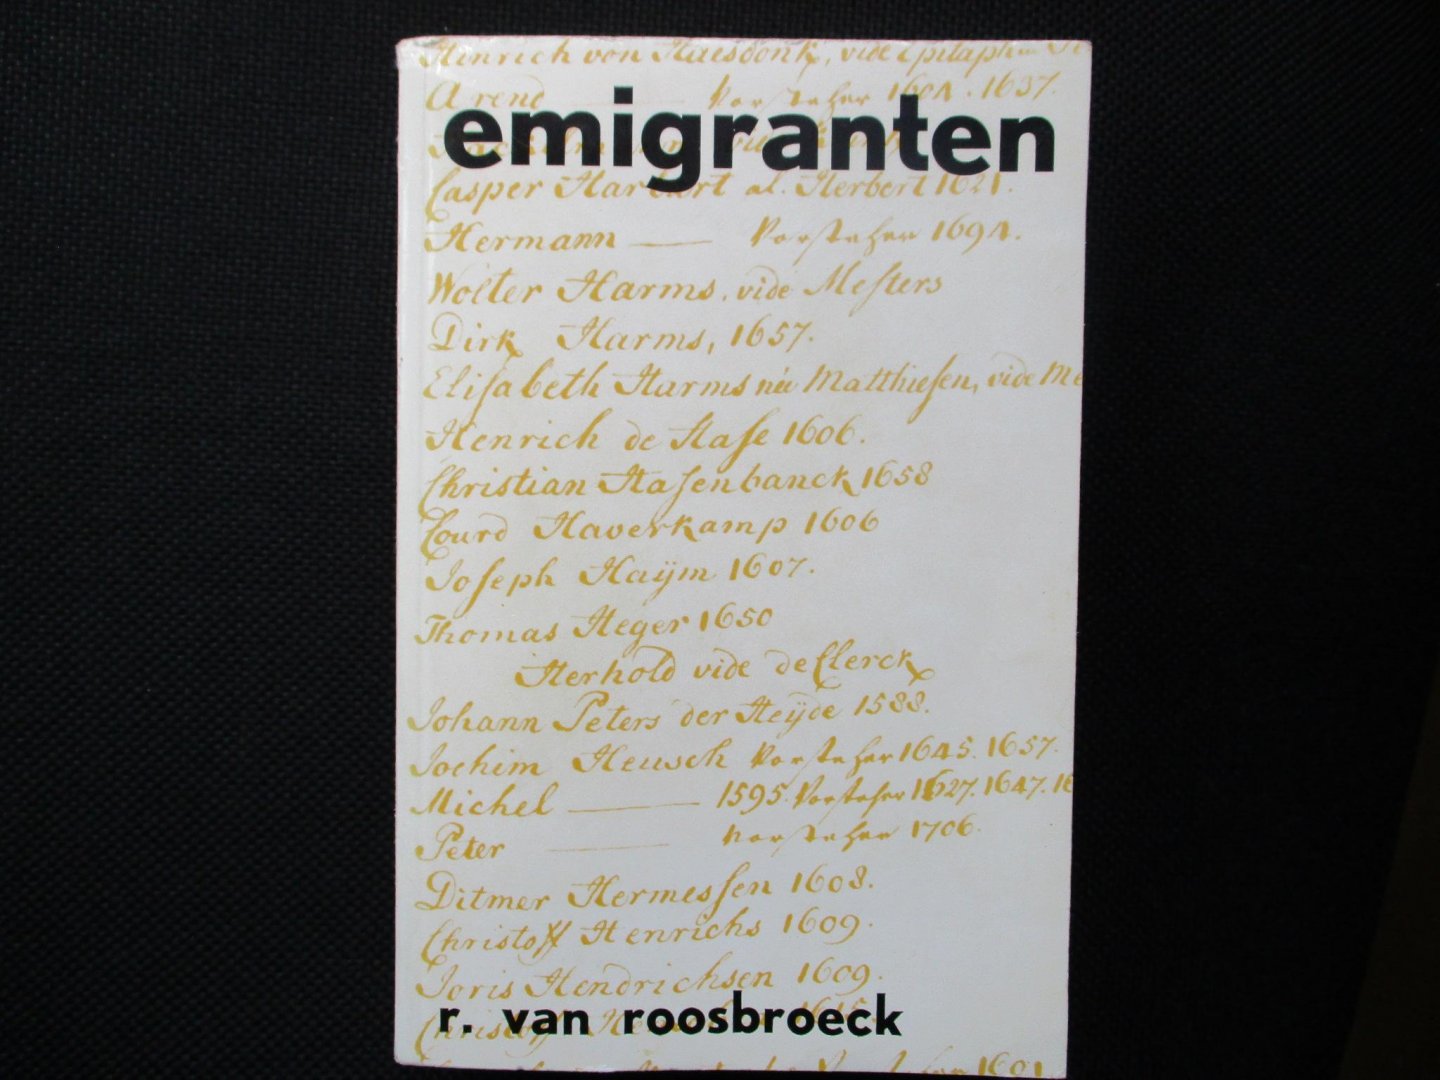 Hinrich von Haesdonk, vide Epitaph
Arend Vorsteher 1604. 1637.
emigranten
Casper Harbart al. Herbert 1621.
Hermann Vorsteher 1694.
Wolter Harms, vide Mesters
Dirk Harms, 1657.
Elisabeth Harms née Matthiesen, vide Me
Henrich de Hase 1606.
Christian Hasenbanck 1658
Courd Haverkamp 1606
Joseph Haÿm 1607.
Thomas Heger 1650
Herhold vide de Clerck
Johann Peters der Heÿde 1588.
Jochim Heusch Vorsteher 1645. 1657.
Michel 1595. Vorsteher 1627. 1647. 16
Peter Vorsteher 1706.
Ditmer Hermessen 1608.
Christoff Henrichs 1609.
Joris Hendrichsen 1609.
r. van roosbroeck